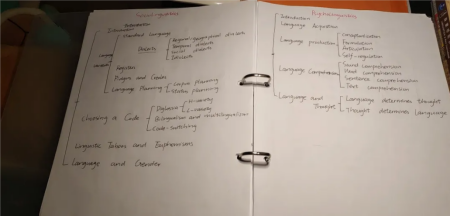 Sociolinguistics
Introduction
Standard Language
Dialects
Regional dialects
Social dialects
Idiolects
Registers
Pidgins and Creoles
Language Planning
Corpus Planning
Status Planning
Choosing a Code
Diglossia
H-variety
L-variety
Bilingualism and multilingualism
Code-switching
Linguistic Taboos and Euphemisms
Language and Gender
Psycholinguistics
Introduction
Language Acquisition
Language production
Conceptualization
Formulation
Articulation
Self-regulation
Language Comprehension
Sound comprehension
Word comprehension
Sentence comprehension
Text comprehension
Language and Thought
Language determines thought
Thought determines Language